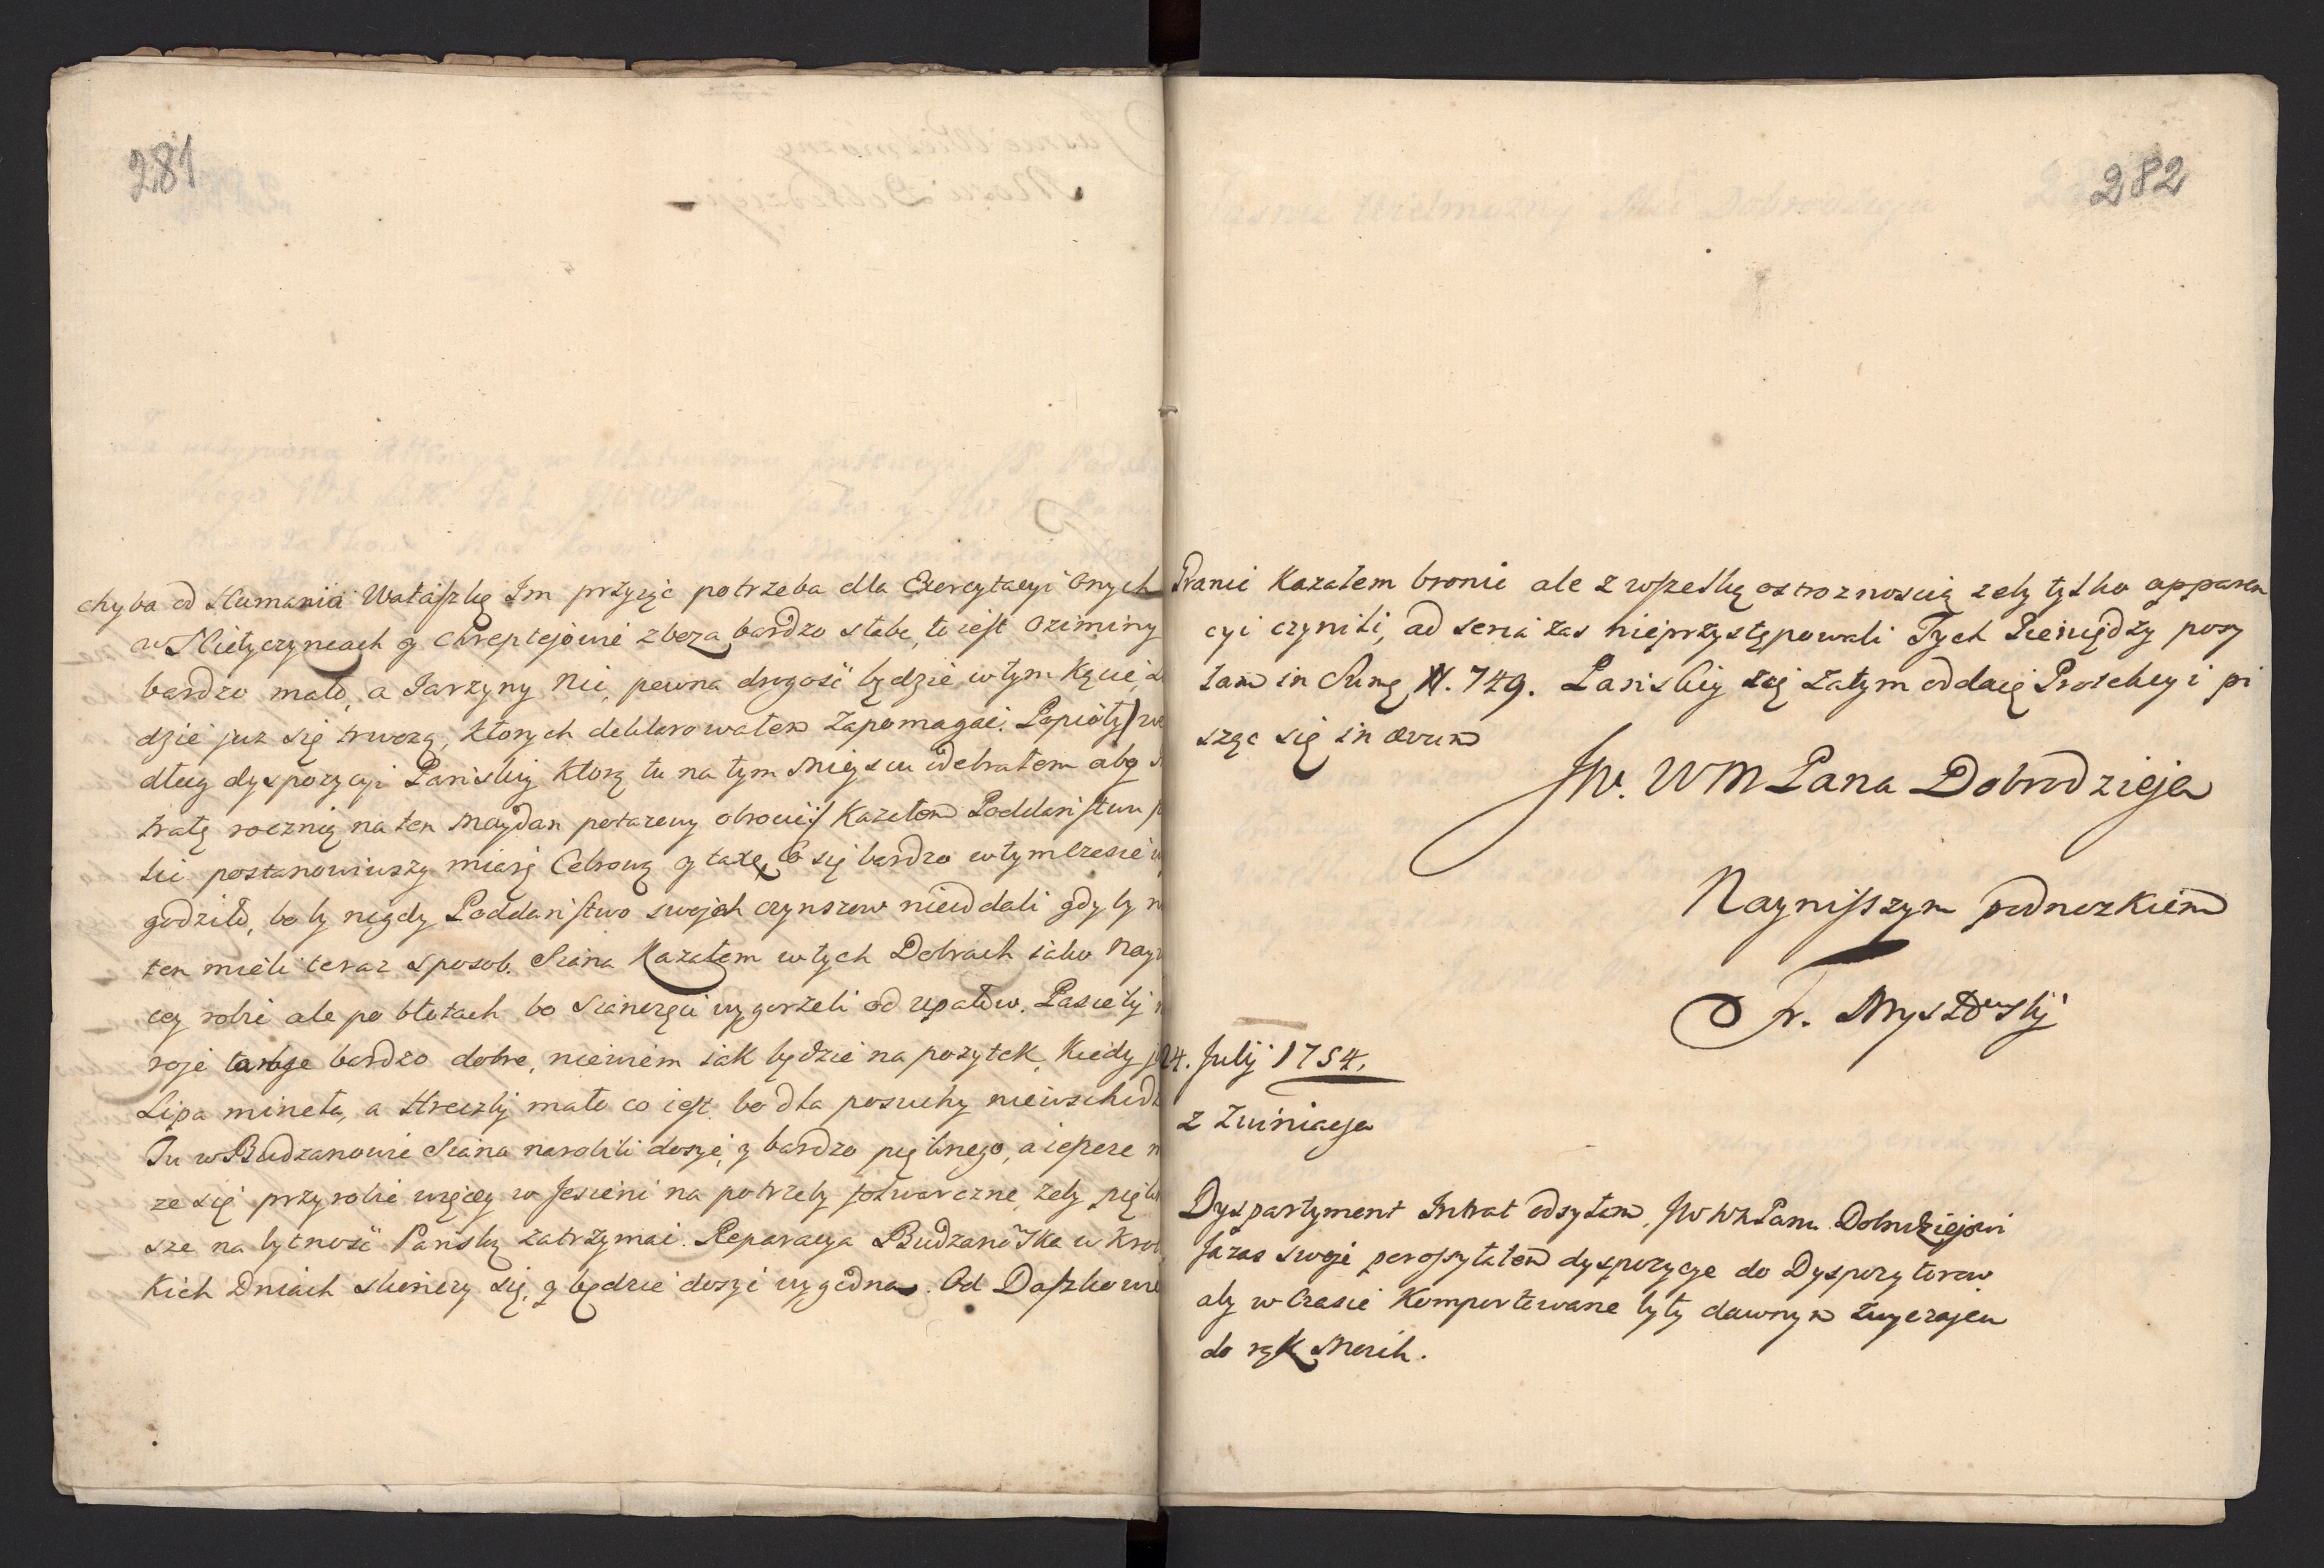 281
chyba od Humania Wataszkę Im przyiąć potrzeba dla Exercytacyi Onych
w Mietyczyncach y Chreptejowie zboza bardzo słabe, to iest Oziminy
bardzo mało, a Jarzyny nic, pewna drogość będzie w tym Kącie,
dzie juz się trwozą, ktorych deklarowałem Zapomagać. Popioły
dług dyspozycyi Pańskiey ktorą tu na tym Mieyscu odebrałem aby
tratę rocznią na ten Maydan potazowy obrocić Kazałem Poddaństwu
lić postanowiwszy miarę Cebrową y taxę, co się bardzo w tym Czasie
godziło, bo by nigdy Poddaństwo swojch czynszow nieoddali gdy by
ten mieli teraz sposob. Siana Kazałem w tych Dobrach iako Nay
cey robić ale po błotach bo Sianozęci wygorzeli od upałow. Pasieky
roje bardzo dobre, niewiem iak będzie na pozytek, Kiedy
Lipa mineła, a Hreczky mało co iest bo dla posuchy niewschod
Tu w Budzanowie Siana narobili dosyć, y bardzo pięknego, a ieszcze
ze się przyrobić więcey w Jesieni na potrzeby folwarczne, zeby pięk
sze na bytność Pańską zatrzymać. Reparacya Budzanoska w Krot
Kich Dniach skończy się, y będzie dosyć wygodna. Od Daszkowie
282
Granic Kazałem bronić ale z wszelką ostroznoscią zeby tylko apparen
cyi czynili, ad seria zas nieprzystępowali Tych Pieniędzy posy
łam in Sumę N. 749. Pańskiey się Zatym oddaię Protekcyi pi
sząc się in ævum
JW. WM Pana Dobrodzieja
Naynisszym podnozkiem
Fr. Myszkowsky
24. Julij 1754.
z Zwiniacza
Dyspartyment Intrat odsyłam, JW WM Panu Dobrodziejowi
Ja zas swoje porossyłałem dyspozycye do Dyspozytorow
aby w Czasie Komportowane były dawnym zwyczajem
do rąk Moich.